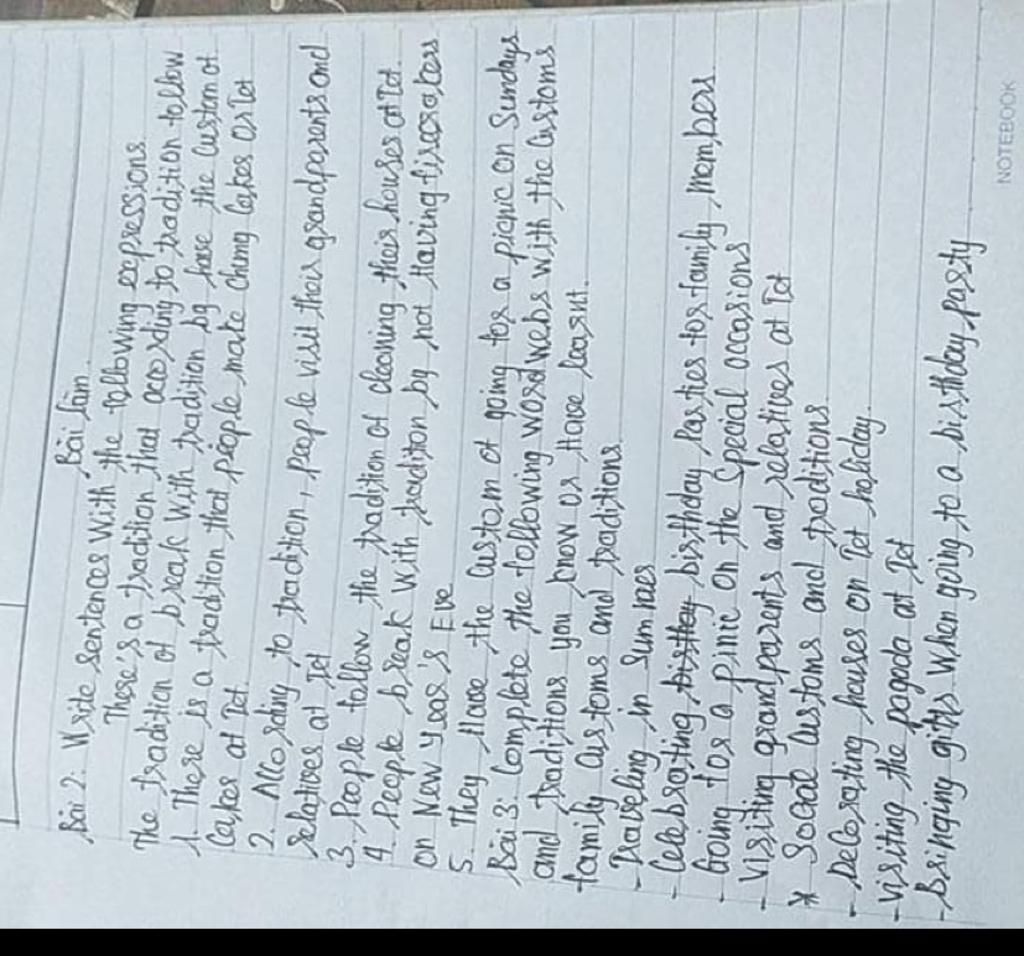 Bài làm
Bài 2: Write sentences With the following expressions.
There's a tradition that according to tradition follow
The tradition of break With tradition by have the Custom of
1. There is a tradition that people make Chưng Cakes or Tet
Cakes at Tet.
2. According to tradition, people visit their grandparents and
relatives at Tet
3. People follow the tradition of cleaning their houses at Tet.
4 People break with tradition by not Having
on New year's Eve
5. They Have the Custom of going for a picnic on Sundays
Bài 3: Complete the following word webs with the Customs
and traditions you know or Have learnt.
family customs and traditions
- Traveling in Summer
- Celebrating birthday Parties for family Members
- Going for a pinic on the Special occasions
- Visiting grand parents and relatives at Tet
* Social Customs and traditions.
- Decorating houses on Tet holiday.
- Visiting the pagoda at Tet
- Bringing gifts When going to a birthday party
NOTEBOOK